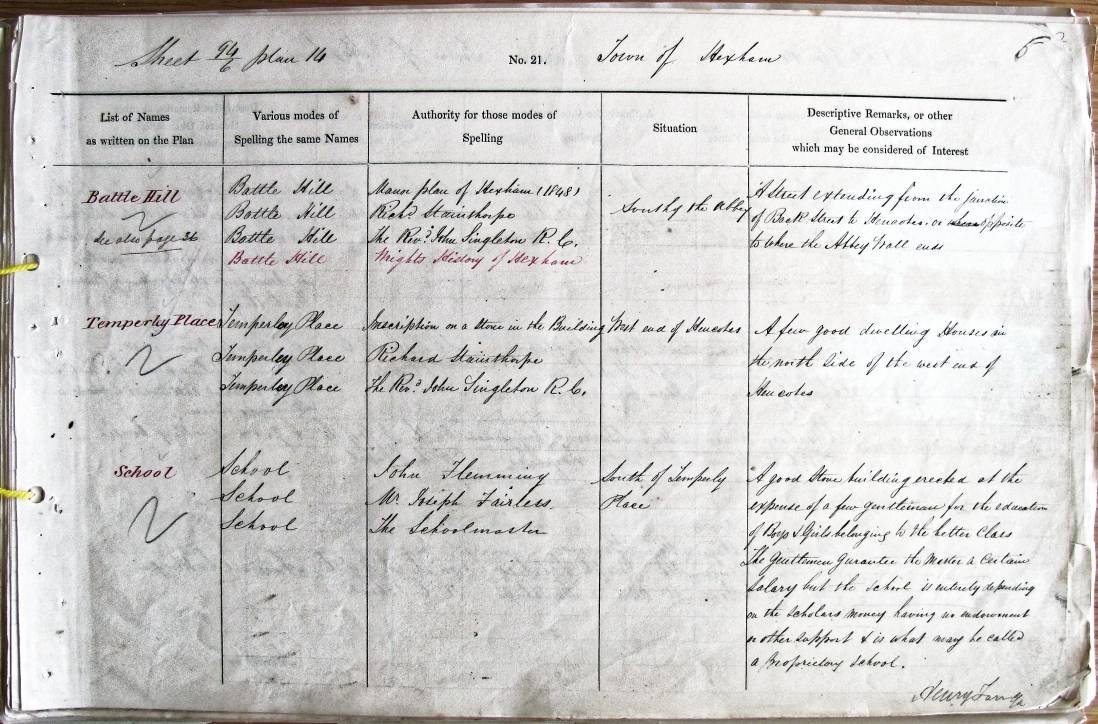 Sheet 94/6 plan 14 No. 21. Town of Hexham 5
List of Names
as written on the Plan
Various modes of
Spelling the same Names
Authority for those modes of
Spelling
Situation
Descriptive Remarks, or other
General Observations
which may be considered of Interest
Battle Hill
See also page 36
Battle Hill
Battle Hill
Battle Hill
Battle Hill
Manor plan of Hexham (1848)
Richd Stainthorpe
The Revd. John Singleton R. C.
Wrights History of Hexham
South of the Abbey
A Street extending from the junction
of Back Street to Hencotes. or opposite
to where the Abbey Wall ends
Temperley Place
Temperley Place
Temperley Place
Temperley Place
Inscription on a Stone in the Building
Richard Stainthorpe
The Revd. John Singleton R. C.
West end of Hencotes
A few good dwelling Houses in
the north Side of the west end of
Hencotes
School
School
School
School
John Flemming
Mr. Joseph Fairless.
The Schoolmaster
South of Temperly
Place
A good Stone building erected at the
expense of a few gentleman for the education
of Boys & Girls belonging to the better Class
The Gentlemen Gurantee the Master a Certain
Salary but the School is entirely depending
on the Scholars money having no endowment
or other support & is what may be called
a Proprietory School.
Henry